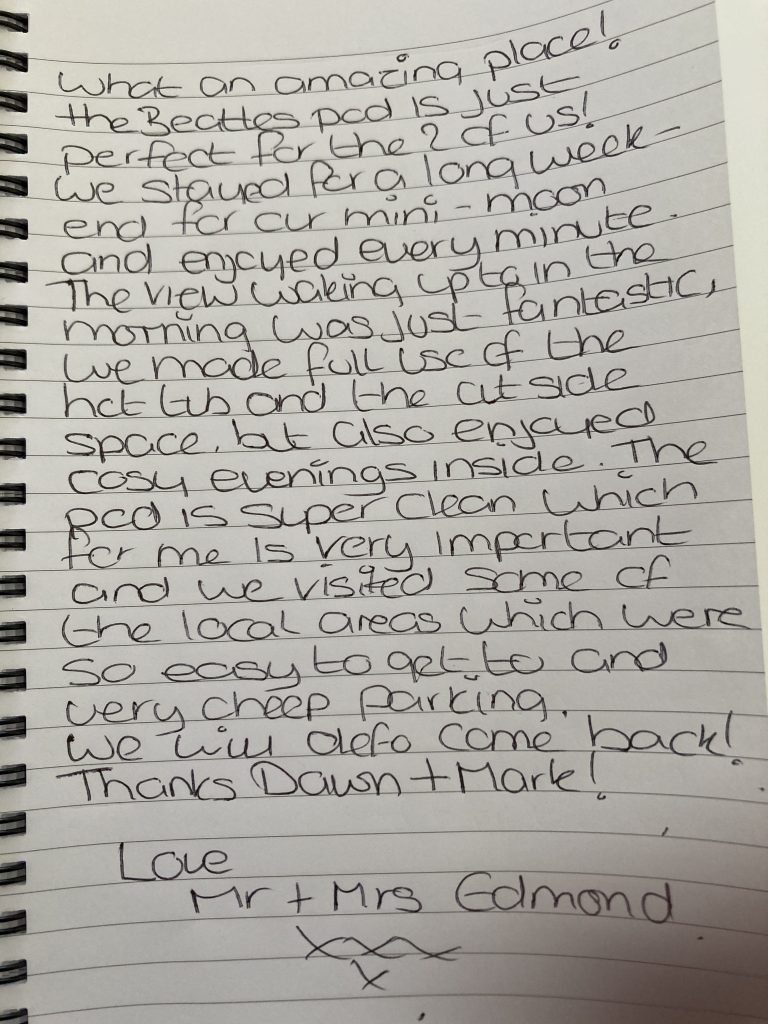 What an amazing place!
the Beattes pod is just
perfect for the 2 of us!
We stayed for a long week-
end for our mini-moon
and enjoyed every minute.
The view waking up to in the
morning was just fantastic,
we made full use of the
hot tub and the outside
space, but also enjoyed
cosy evenings inside. The
pod is super clean which
for me is very important
and we visited some of
the local areas which were
so easy to get to and
very cheep parking.
We will defo come back!
Thanks Dawn + Mark!
Love
Mr + Mrs Edmond
xxx
x